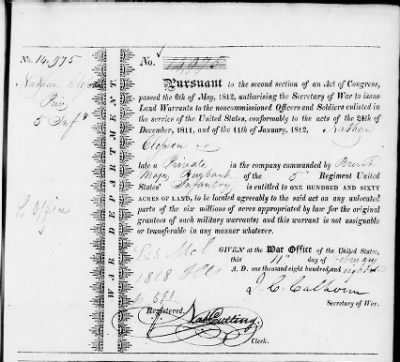 No. 14,975
No. 14,975
Nathan
5 Inf
WAR DEPARTMENT
PURSUANT to the second section of an Act of Congress,
passed the 6th of May, 1812, authorising the Secretary of War to issue
Land Warrants to the noncommissioned Officers and Soldiers enlisted in
the service of the United States, conformably to the acts of the 24th of
December, 1811, and of the 11th of January, 1812, Nathan
late a Private in the company commanded by Brevet
Major of the 5 Regiment United
States' Infantry is entitled to ONE HUNDRED AND SIXTY
ACRES OF LAND, to be located agreeably to the said act on any unlocated
parts of the six millions of acres appropriated by law for the original
grantees of such military warrants; and this warrant is not assignable
or transferable in any manner whatever.
GIVEN at the War Office of the United States,
this 11th day of
A. D. one thousand eight hundred and
1818
J. C. Calhoun
Secretary of War.
Registered
Nat Cutting
Clerk.